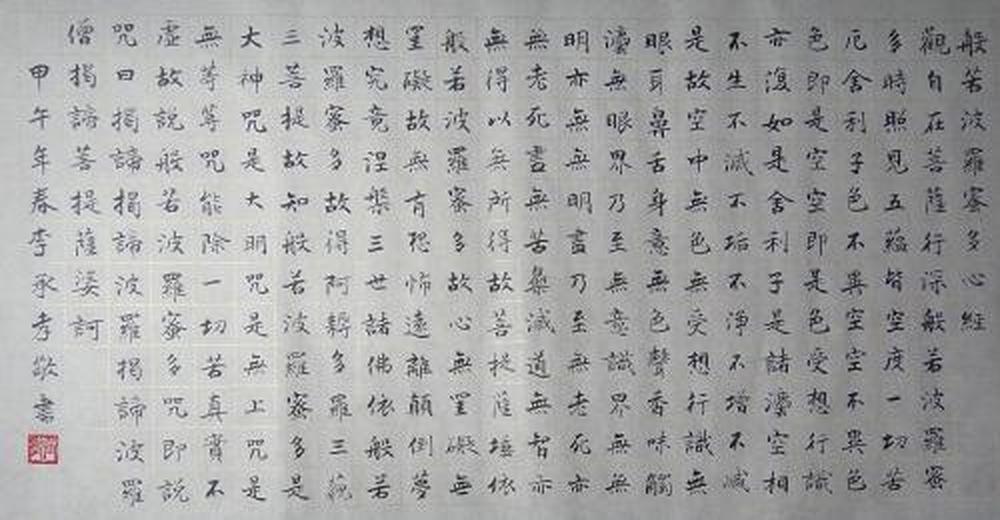 般若波羅蜜多心經
觀自在菩薩行深般若波羅蜜
多時照見五蘊皆空度一切苦
厄舍利子色不異空空不異色
色即是空空即是色受想行識
亦復如是舍利子是諸灋空相
不生不滅不垢不淨不增不減
是故空中無色無受想行識無
眼耳鼻舌身意無色聲香味觸
灋無眼界乃至無意識界無無
明亦無無明盡乃至無老死亦
無老死盡無苦集滅道無智亦
無得以無所得故菩提薩埵依
般若波羅蜜多故心無罣礙無
罣礙故無有恐怖遠離顛倒夢
想究竟涅槃三世諸佛依般若
波羅蜜多故得阿耨多羅三藐
三菩提故知般若波羅蜜多是
大神咒是大明咒是無上咒是
無等等咒能除一切苦真實不
虛故說般若波羅蜜多咒即說
咒曰揭諦揭諦波羅揭諦波羅
僧揭諦菩提薩婆訶
甲午年春李承孝敬書